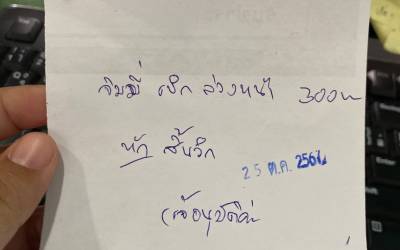 จิมมี่ เบิก ล่วงหน้า 300บ
หัก สิ้นวิก
25 ต.ค. 256
เจ๊อนุมัติค่ะ